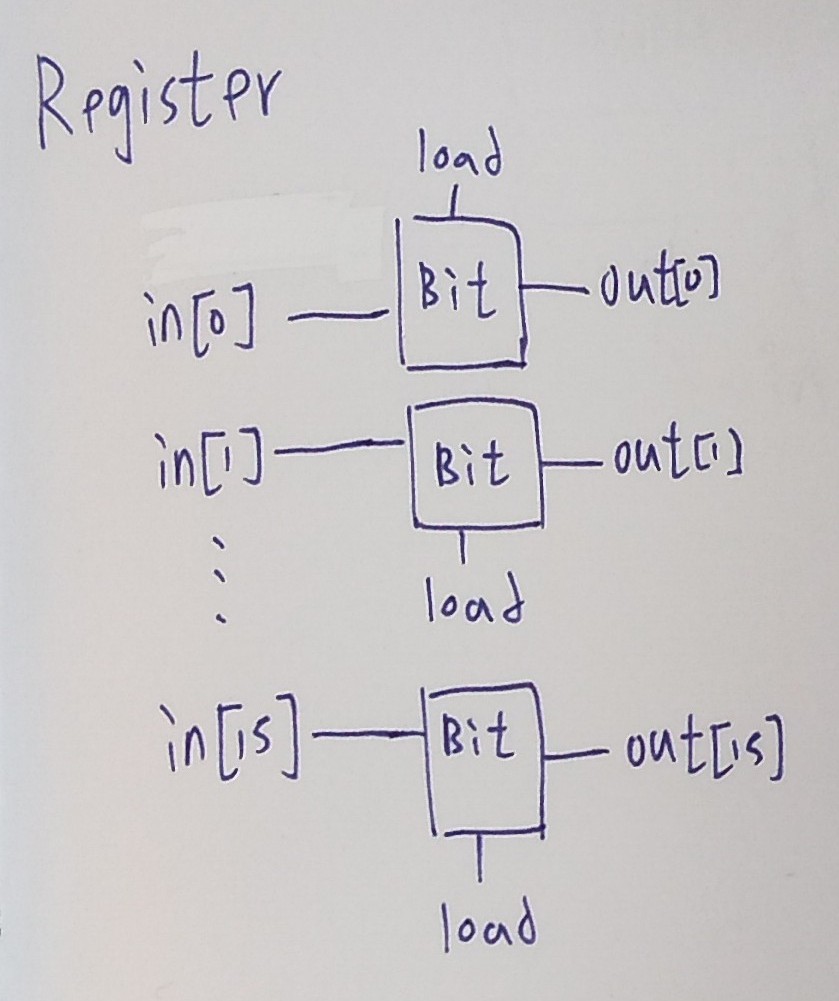 Register
load
in[0] Bit out[0]
in[1] Bit out[1]
load
in[15] Bit out[15]
load